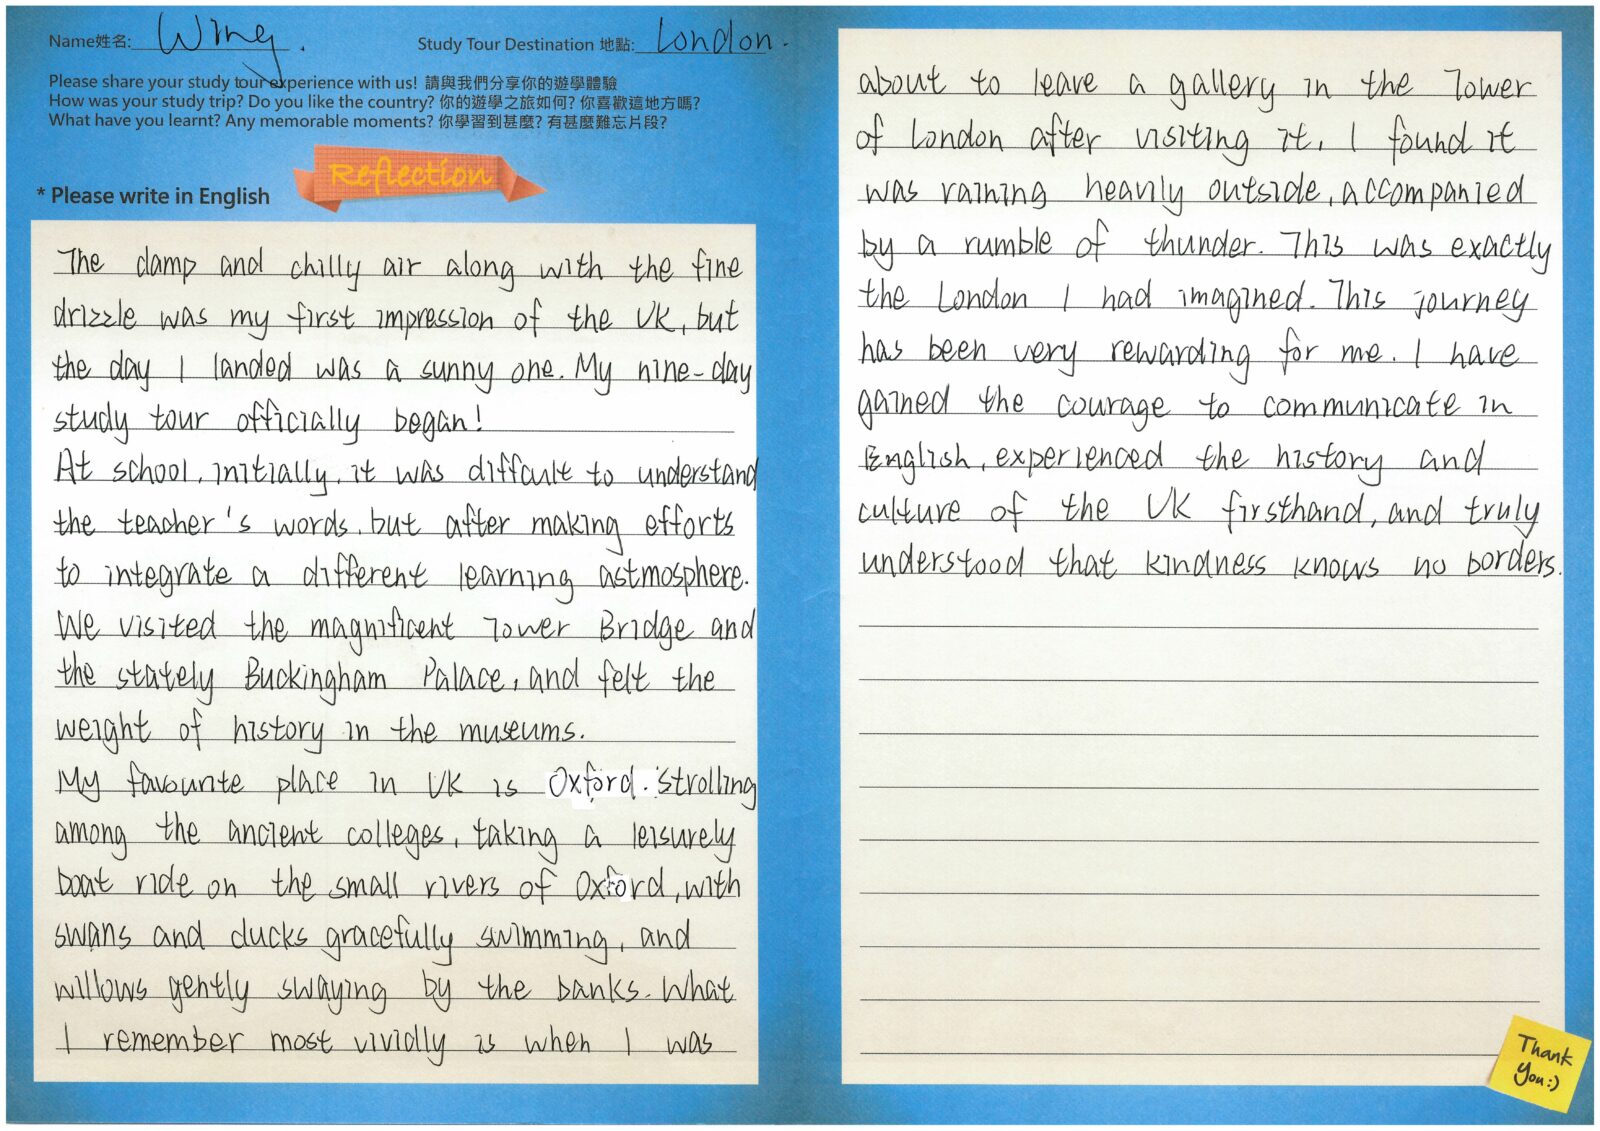 Name姓名: Wing.
Study Tour Destination 地點: London.
Please share your study tour experience with us! 請與我們分享你的遊學體驗
How was your study trip? Do you like the country? 你的遊學之旅如何? 你喜歡這地方嗎?
What have you learnt? Any memorable moments? 你學習到甚麼? 有甚麼難忘片段?
Reflection
* Please write in English
The damp and chilly air along with the fine
drizzle was my first impression of the UK, but
the day I landed was a sunny one. My nine-day
study tour officially began!
At school, initially, it was difficult to understand
the teacher's words, but after making efforts
to integrate a different learning astmosphere.
We visited the magnificent Tower Bridge and
the stately Buckingham Palace, and felt the
weight of history in the museums.
My favourite place in UK is Oxford. Strolling
among the ancient colleges, taking a leisurely
boat ride on the small rivers of Oxford, with
swans and ducks gracefully swimming, and
willows gently swaying by the banks. What
I remember most vividly is when I was
about to leave a gallery in the Tower
of London after visiting it, I found it
was raining heavily outside, accompanied
by a rumble of thunder. This was exactly
the London I had imagined. This journey
has been very rewarding for me. I have
gained the courage to communicate in
English, experienced the history and
culture of the UK firsthand, and truly
understood that kindness knows no borders.
Thank
You:)